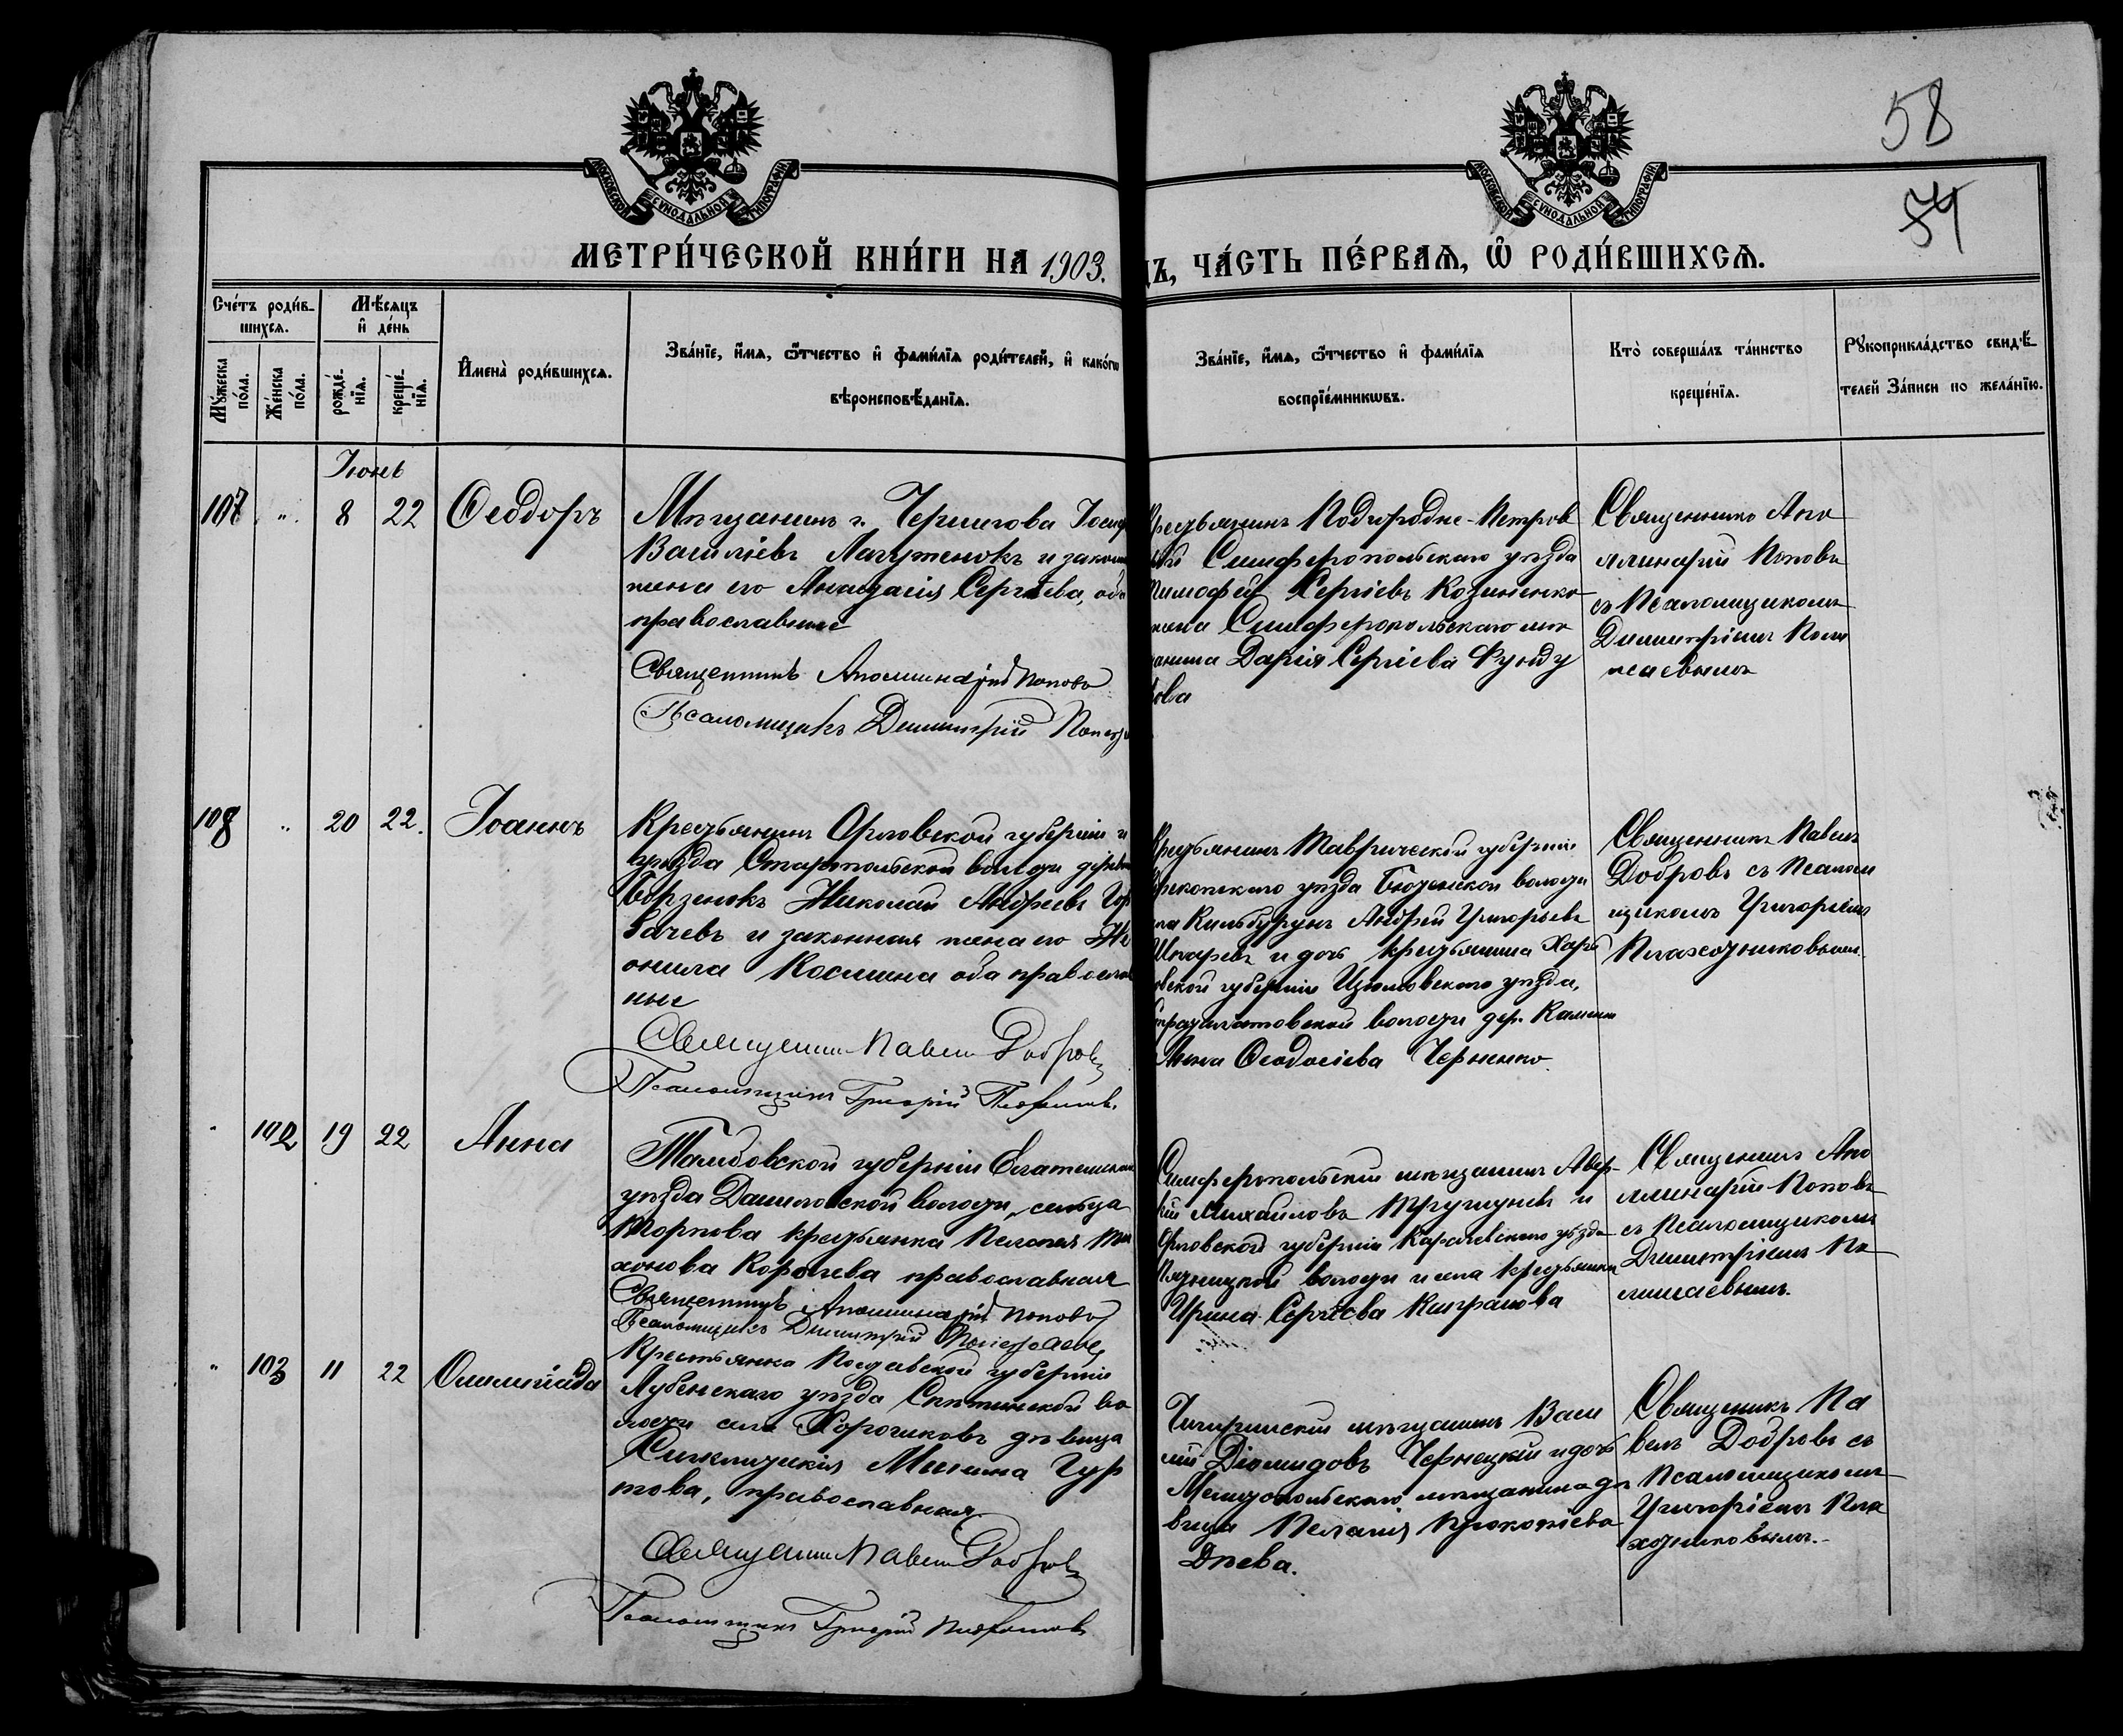 58
54
МОСКОВСКОЙ СѴНОДАЛЬНОЙ ТИПОГРАФІИ
МОСКОВСКОЙ СѴНОДАЛЬНОЙ ТИПОГРАФІИ
МЕТРИ́ЧЕСКОЙ КНИ́ГИ НА 1903.
ДЪ, ЧА́СТЬ ПЕ́РВАЯ, Ѽ РОДИ́ВШИХСЯ.
Сче́тъ роди́в-
шихся.
Мѣ́сяцъ
и҆ де́нь
Мꙋ́жеска
по́ла.
Же́нска
по́ла.
рожде́-
нїѧ.
креще́-
нїѧ.
И҆мена̀ роди́вшихся.
Зва́нїе, и҆́мѧ, ѻ҆́тчество и҆ фами́лїѧ роди́телей, и҆ како́гѡ
вѣроисповѣ́данїѧ.
Зва́нїе, и҆́мѧ, ѻ҆́тчество и҆ фами́лїѧ
воспрїе́мникѡвъ.
Кто̀ соверша́лъ та́инство
креще́нїѧ.
Рꙋкоприкла́дство свидѣ́-
телей За́писи по жела́нїю.
Іюнь
107 " 8 22 Ѳеодоръ
Мѣщанинъ г. Чернигова Іосиф
Василіевъ Лагутенокъ и законн
жена его Анастасія Сергѣева, оба
православные
Священникъ Аполлинарій Поповъ
Псаломщикъ Димитрій
Крестьянинъ Подгородне-Петров
Симферопольскаго уѣзда
Тимофей Сергіевъ Козиненко
жена Симферопольскаго мѣ
щанина Дарія Сергіева Фунду
кова
Священникъ Апо
ллинарій Поповъ
съ Псаломщикомъ
Димитріемъ
108 " 20 22. Іоаннъ
Крестьянинъ Орловской губерніи и
уѣзда Старопольской волости дерев
Борзенокъ Николай Андреевъ Гор
бачевъ и законная жена его
Космина оба православ
ные
Священникъ Павелъ Добровъ
Псаломщикъ Григорій
Крестьянинъ Таврической губерніи
Перекопскаго уѣзда Бютенской волости
Кильбурунъ Андрей Григорьевъ
и дочь крестьянина Харь
ковской губерніи Изюмовскаго уѣзда,
волости дер. Камен
Анна Ѳеодосіева Черненко.
Священникъ Павелъ
Добровъ съ Псалом
щикомъ Григоріемъ
" 102 19 22 Анна
Тамбовской губерніи Елатомскаго
уѣзда Даниловской волости, сельца
Торпова крестьянка Пелагея Ти
хонова Королева православная
Священникъ Аполлинарій Поповъ
Псаломщикъ Димитрій
Симферопольскій мѣщанинъ Авер-
кій Михайловъ и
Орловской губерніи Карачевскаго уѣзда
волости и села крестьянка
Ирина Сергіева
Священникъ Апо
ллинарій Поповъ
съ Псаломщикомъ
Димитріемъ
" 103 11 22 Олимпіада
Крестьянка Полтавской губерніи
Лубенскаго уѣзда волости
села дѣвица
Синклитикія Минина
православная.
Священникъ Павелъ Добровъ
Псаломщикъ Григорій
Чигиринскій мѣщанинъ Васи
лій Діомидовъ Чернецкій и дочь
Мелитопольскаго мѣщанина дѣ
вица Пелагія Прокофіева
Днева.
Священникъ Па
велъ Добровъ съ
Псаломщикомъ
Григоріемъ